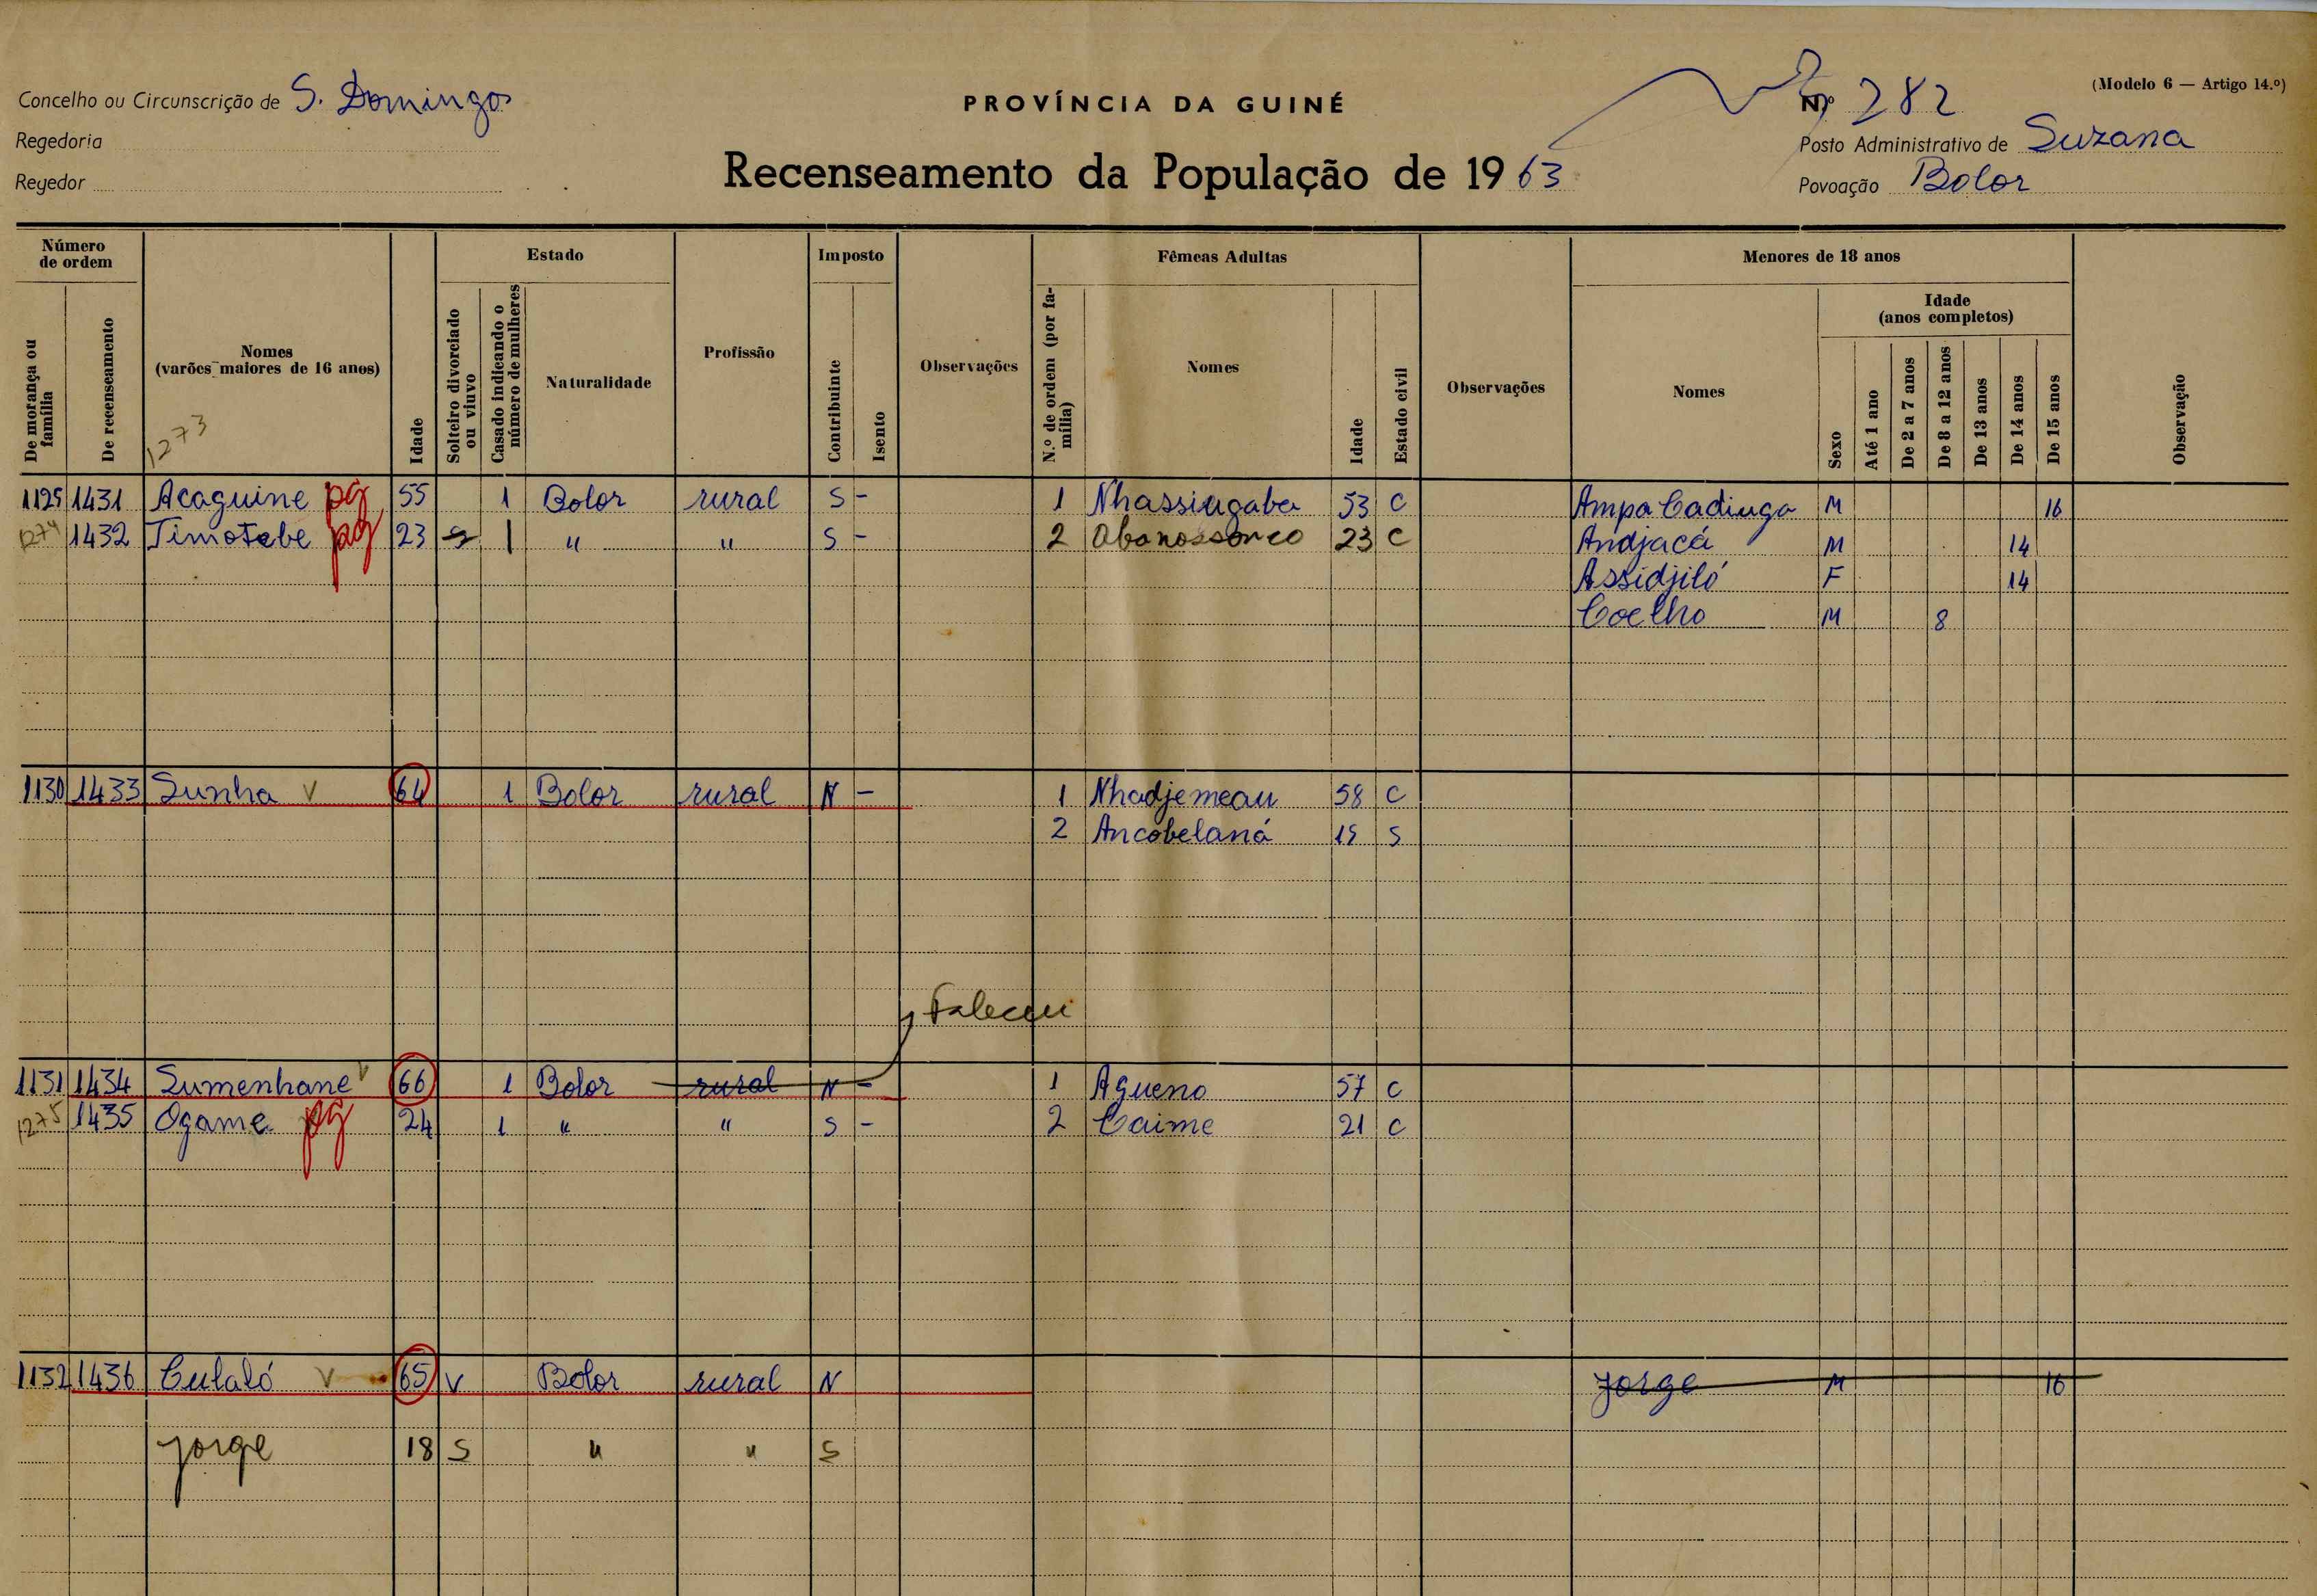 Concelho ou Circunscrição de S. Domingos
Regedoria
Regedor
PROVÍNCIA DA GUINÉ
Recenseamento da População de 1963
(Modelo 6 — Artigo 14.º)
Nº 282
Posto Administrativo de Suzana
Povoação Bolor
Número de ordem
De morança ou família
De recenseamento
Nomes (varões maiores de 16 anos)
1273
Idade
Estado
Solteiro divorciado ou viuvo
Casado indicando o número de mulheres
Naturalidade
Profissão
Imposto
Contribuinte
Isento
Observações
Fêmeas Adultas
N.º de ordem (por família)
Nomes
Idade
Estado civil
Observações
Menores de 18 anos
Nomes
Sexo
Idade (anos completos)
Até 1 ano
De 2 a 7 anos
De 8 a 12 anos
De 13 anos
De 14 anos
De 15 anos
Observação
1125 1431 Acaguine pg 55 1 Bolor rural S - 1 Nhassiugaba 53 C Ampa Cadiuga M 16
1274 1432 Timotebe pg 23 S 1 " " S - 2 Abonossoneo 23 C Andjacá M 14
Assidjiló F 14
Coelho M 8
1130 1433 Sunha V 64 1 Bolor rural N - 1 Nhadjemeau 58 C
2 Ancobelaná 15 S
Faleceu
1131 1434 Sumenhane V 66 1 Bolor rural N - 1 Agueno 57 C
1275 1435 Ogame pg 24 1 " " S - 2 Caime 21 C
1132 1436 Culaló V 65 V Bolor rural N Jorge M 16
Jorge 18 S " " S